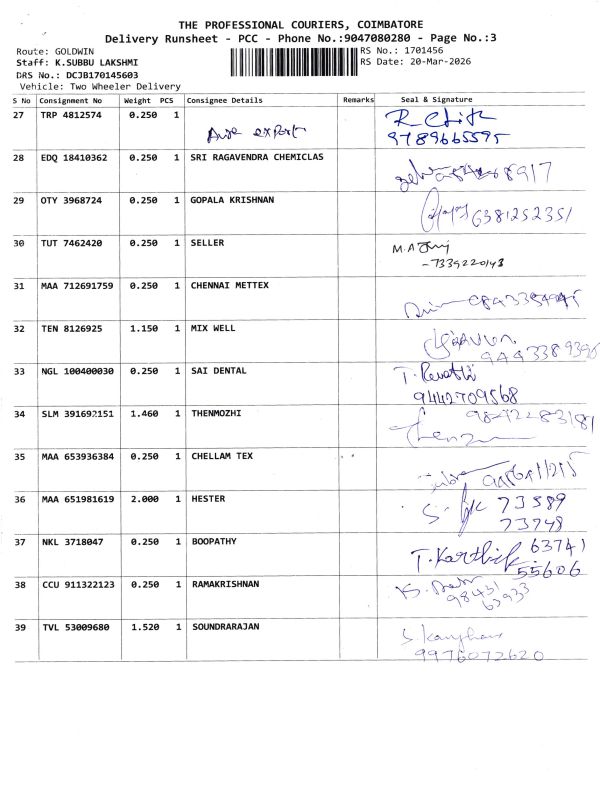 THE PROFESSIONAL COURIERS, COIMBATORE
Delivery Runsheet - PCC - Phone No.:9047080280 - Page No.:3
Route: GOLDWIN
RS No.: 1701456
Staff: K.SUBBU LAKSHMI
RS Date: 20-Mar-2026
DRS No.: DCJB170145603
Vehicle: Two Wheeler Delivery
S No Consignment No Weight PCS Consignee Details Remarks Seal & Signature
27 TRP 4812574 0.250 1
export
9789665595
28 EDQ 18410362 0.250 1 SRI RAGAVENDRA CHEMICLAS
29 OTY 3968724 0.250 1 GOPALA KRISHNAN
6381252351
30 TUT 7462420 0.250 1 SELLER
M.A
-7339220143
31 MAA 712691759 0.250 1 CHENNAI METTEX
32 TEN 8126925 1.150 1 MIX WELL
33 NGL 100400030 0.250 1 SAI DENTAL
T. Revathi
9442709568
34 SLM 391692151 1.460 1 THENMOZHI
35 MAA 653936384 0.250 1 CHELLAM TEX
36 MAA 651981619 2.000 1 HESTER
73589
73748
37 NKL 3718047 0.250 1 BOOPATHY
T. Karthik 63741
55606
38 CCU 911322123 0.250 1 RAMAKRISHNAN
98431
63933
39 TVL 53009680 1.520 1 SOUNDRARAJAN
9976072620